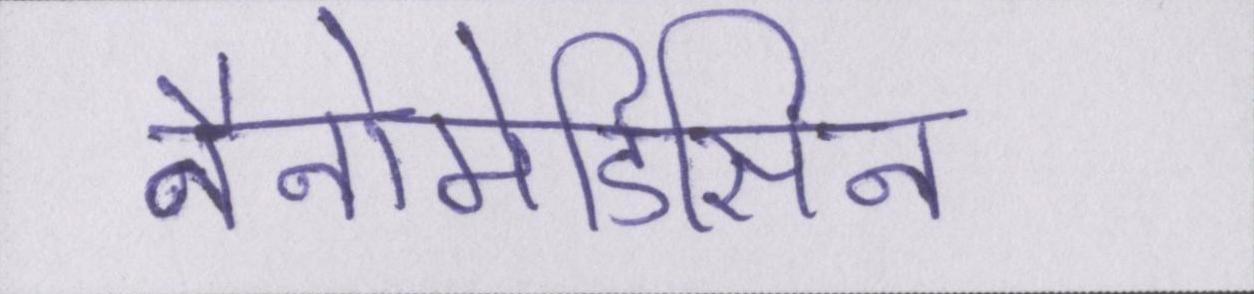 नैनोमेडिसिन